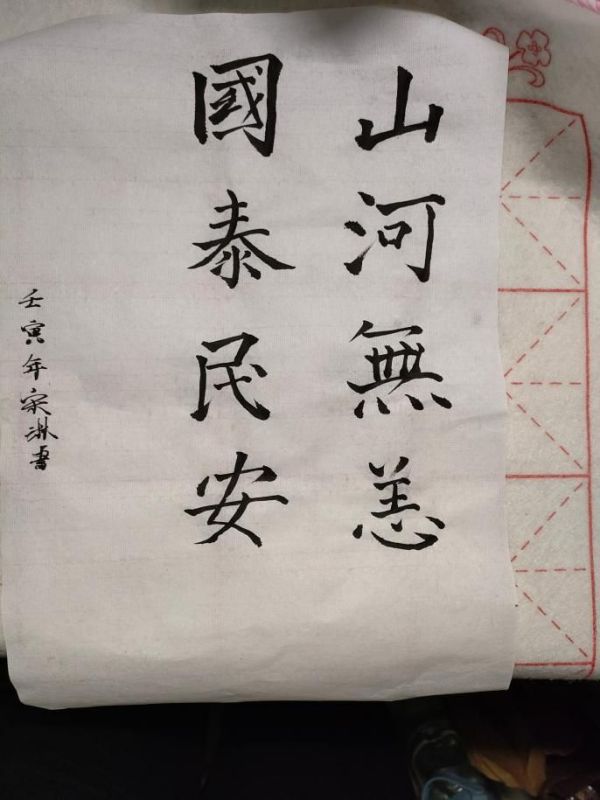 山河無恙
國泰民安
壬寅年宋琳書